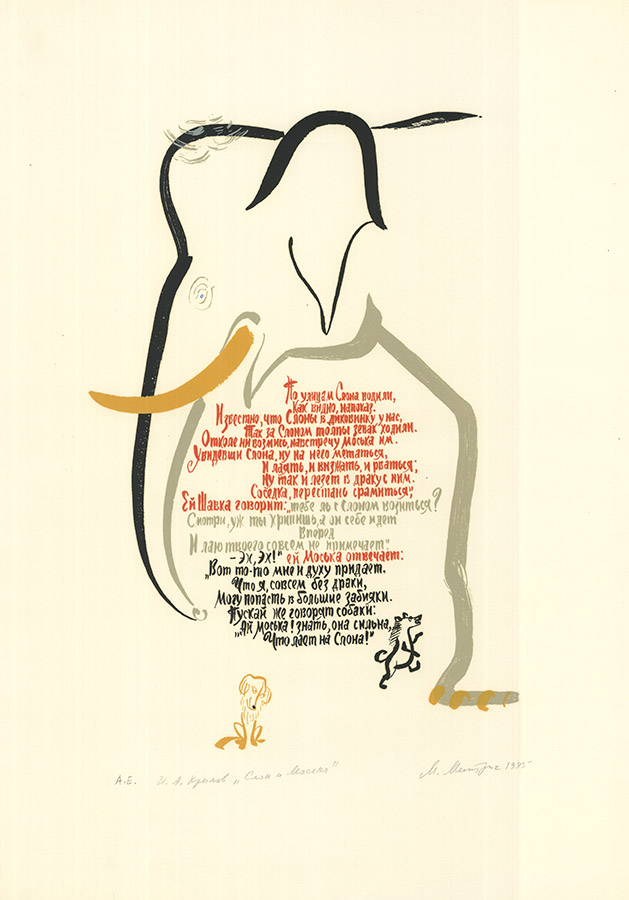 По улицам Слона водили,
Как видно, напоказ.
Известно, что Слоны в диковинку у нас,
Так за Слоном толпы зевак ходили.
Отколе ни возмись, навстречу Моська им.
Увидевши Слона, ну на него метаться,
И лаять, и визжать, и рваться;
Ну так и лезет в драку с ним.
Соседка, перестань срамиться,"
Ей Шавка говорит: „тебе ль с Слоном возиться?
Смотри, уж ты хрипишь, а он себе идет
Вперед
И лаю твоего совсем не примечает".
– Эх, эх!" ей Моська отвечает:
„Вот то-то мне и духу придает,
Что я, совсем без драки,
Могу попасть в большие забияки.
Пускай же говорят собаки:
„Ай Моська! знать, она сильна,
Что лает на Слона!"
А.Е. И. А. Крылов „Слон и Моська"
М. 1985